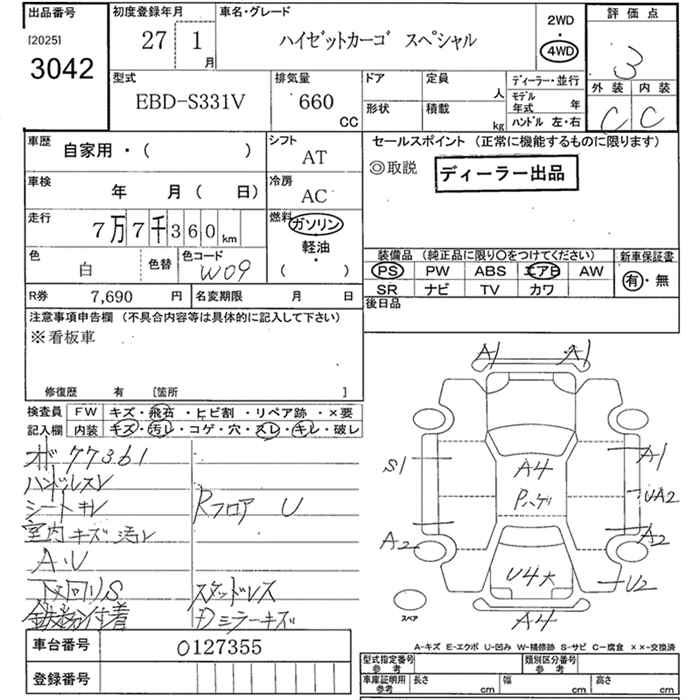 出品番号 初度登録年月 車名・グレード 2WD・4WD 評価点
[2025] 27 1月 ハイゼットカーゴ スペシャル 3
3042
型式 排気量 ドア 定員 人 ディーラー・並行 外装 内装
EBD-S331V 660 CC 形状 積載 kg モデル年式 年 C C
ハンドル 左・右
車歴 自家用・( ) シフト AT セールスポイント (正常に機能するものに限ります)
◎取説 ディーラー出品
車検 年 月 ( 日) 冷房 AC
走行 7万7千360km 燃料 ガソリン・軽油・( )
色 白 色替 色コード W09
装備品 (純正品に限り○をつけてください) 新車保証書
PS PW ABS エアB AW 有・無
SR ナビ TV カワ
R券 7,690 円 名変期限 月 日 後日品
注意事項申告欄 (不具合内容等は具体的に記入して下さい)
※看板車
修復歴 有 [箇所 ]
検査員記入欄 FW キズ・飛石・ヒビ割・リペア跡・×要
内装 キズ・汚レ・コゲ・穴・スレ・キレ・破レ
77361
ハンドルスレ
シートキレ Rフロア U
室内キズ汚レ
A・U
下回りS スタッドレス
鉄粉付着 Dミラーキズ
A1 A1
S1 A4 A1
Pハゲ UA2
A2 A2
U4大 U2
スペア A4
A-キズ E-エクボ U-凹み W-補修跡 S-サビ C-腐食 ××-交換済
車台番号 0127355
登録番号
型式指定番号 参考 類別区分番号 参考
車庫証明用 参考 長さ cm 幅 cm 高さ cm